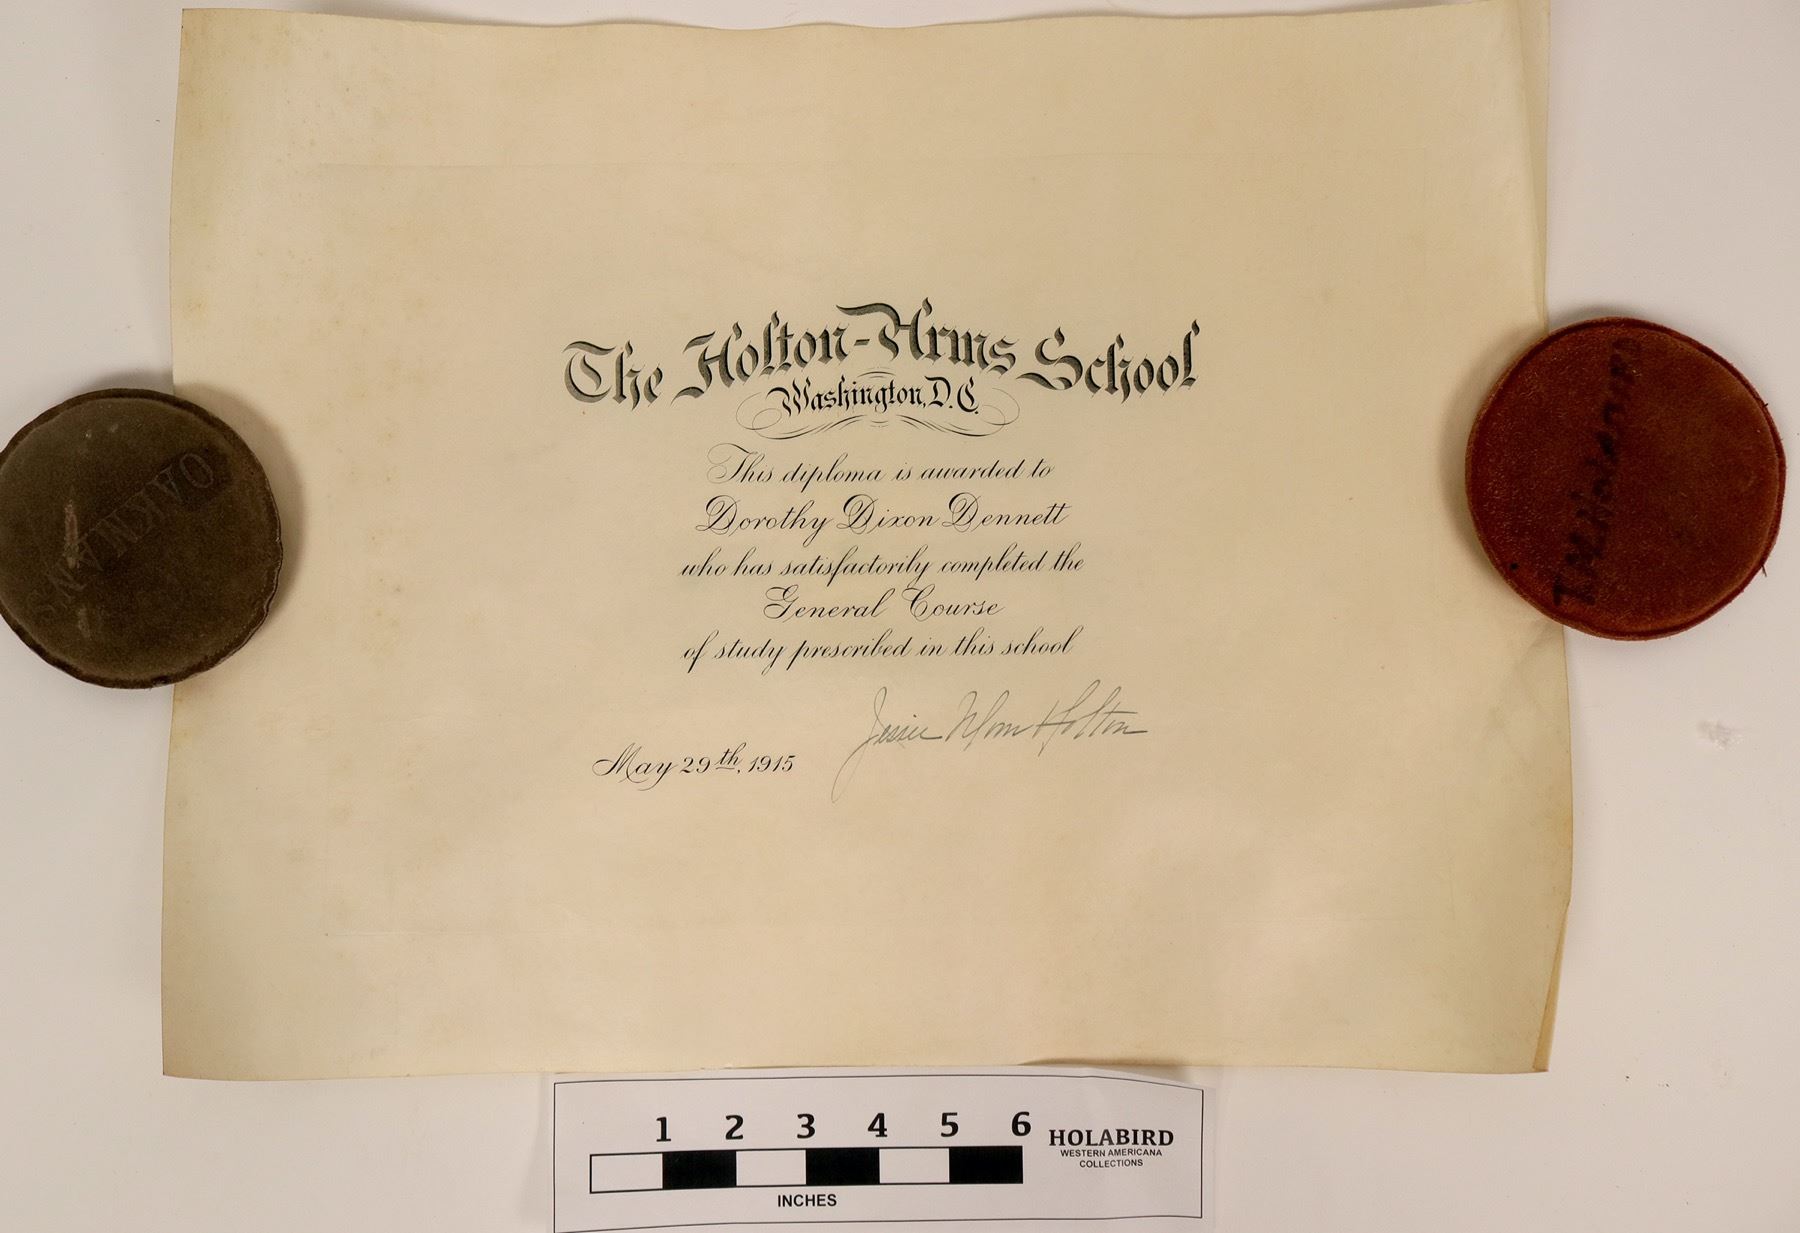 The Holton-Arms School
Washington, D.C.
This diploma is awarded to
Dorothy Dixon Dennett
who has satisfactorily completed the
General Course
of study prescribed in this school
Jessie Holton
May 29th, 1915
OAKMAN'S
1 2 3 4 5 6
HOLABIRD
WESTERN AMERICANA
COLLECTIONS
INCHES